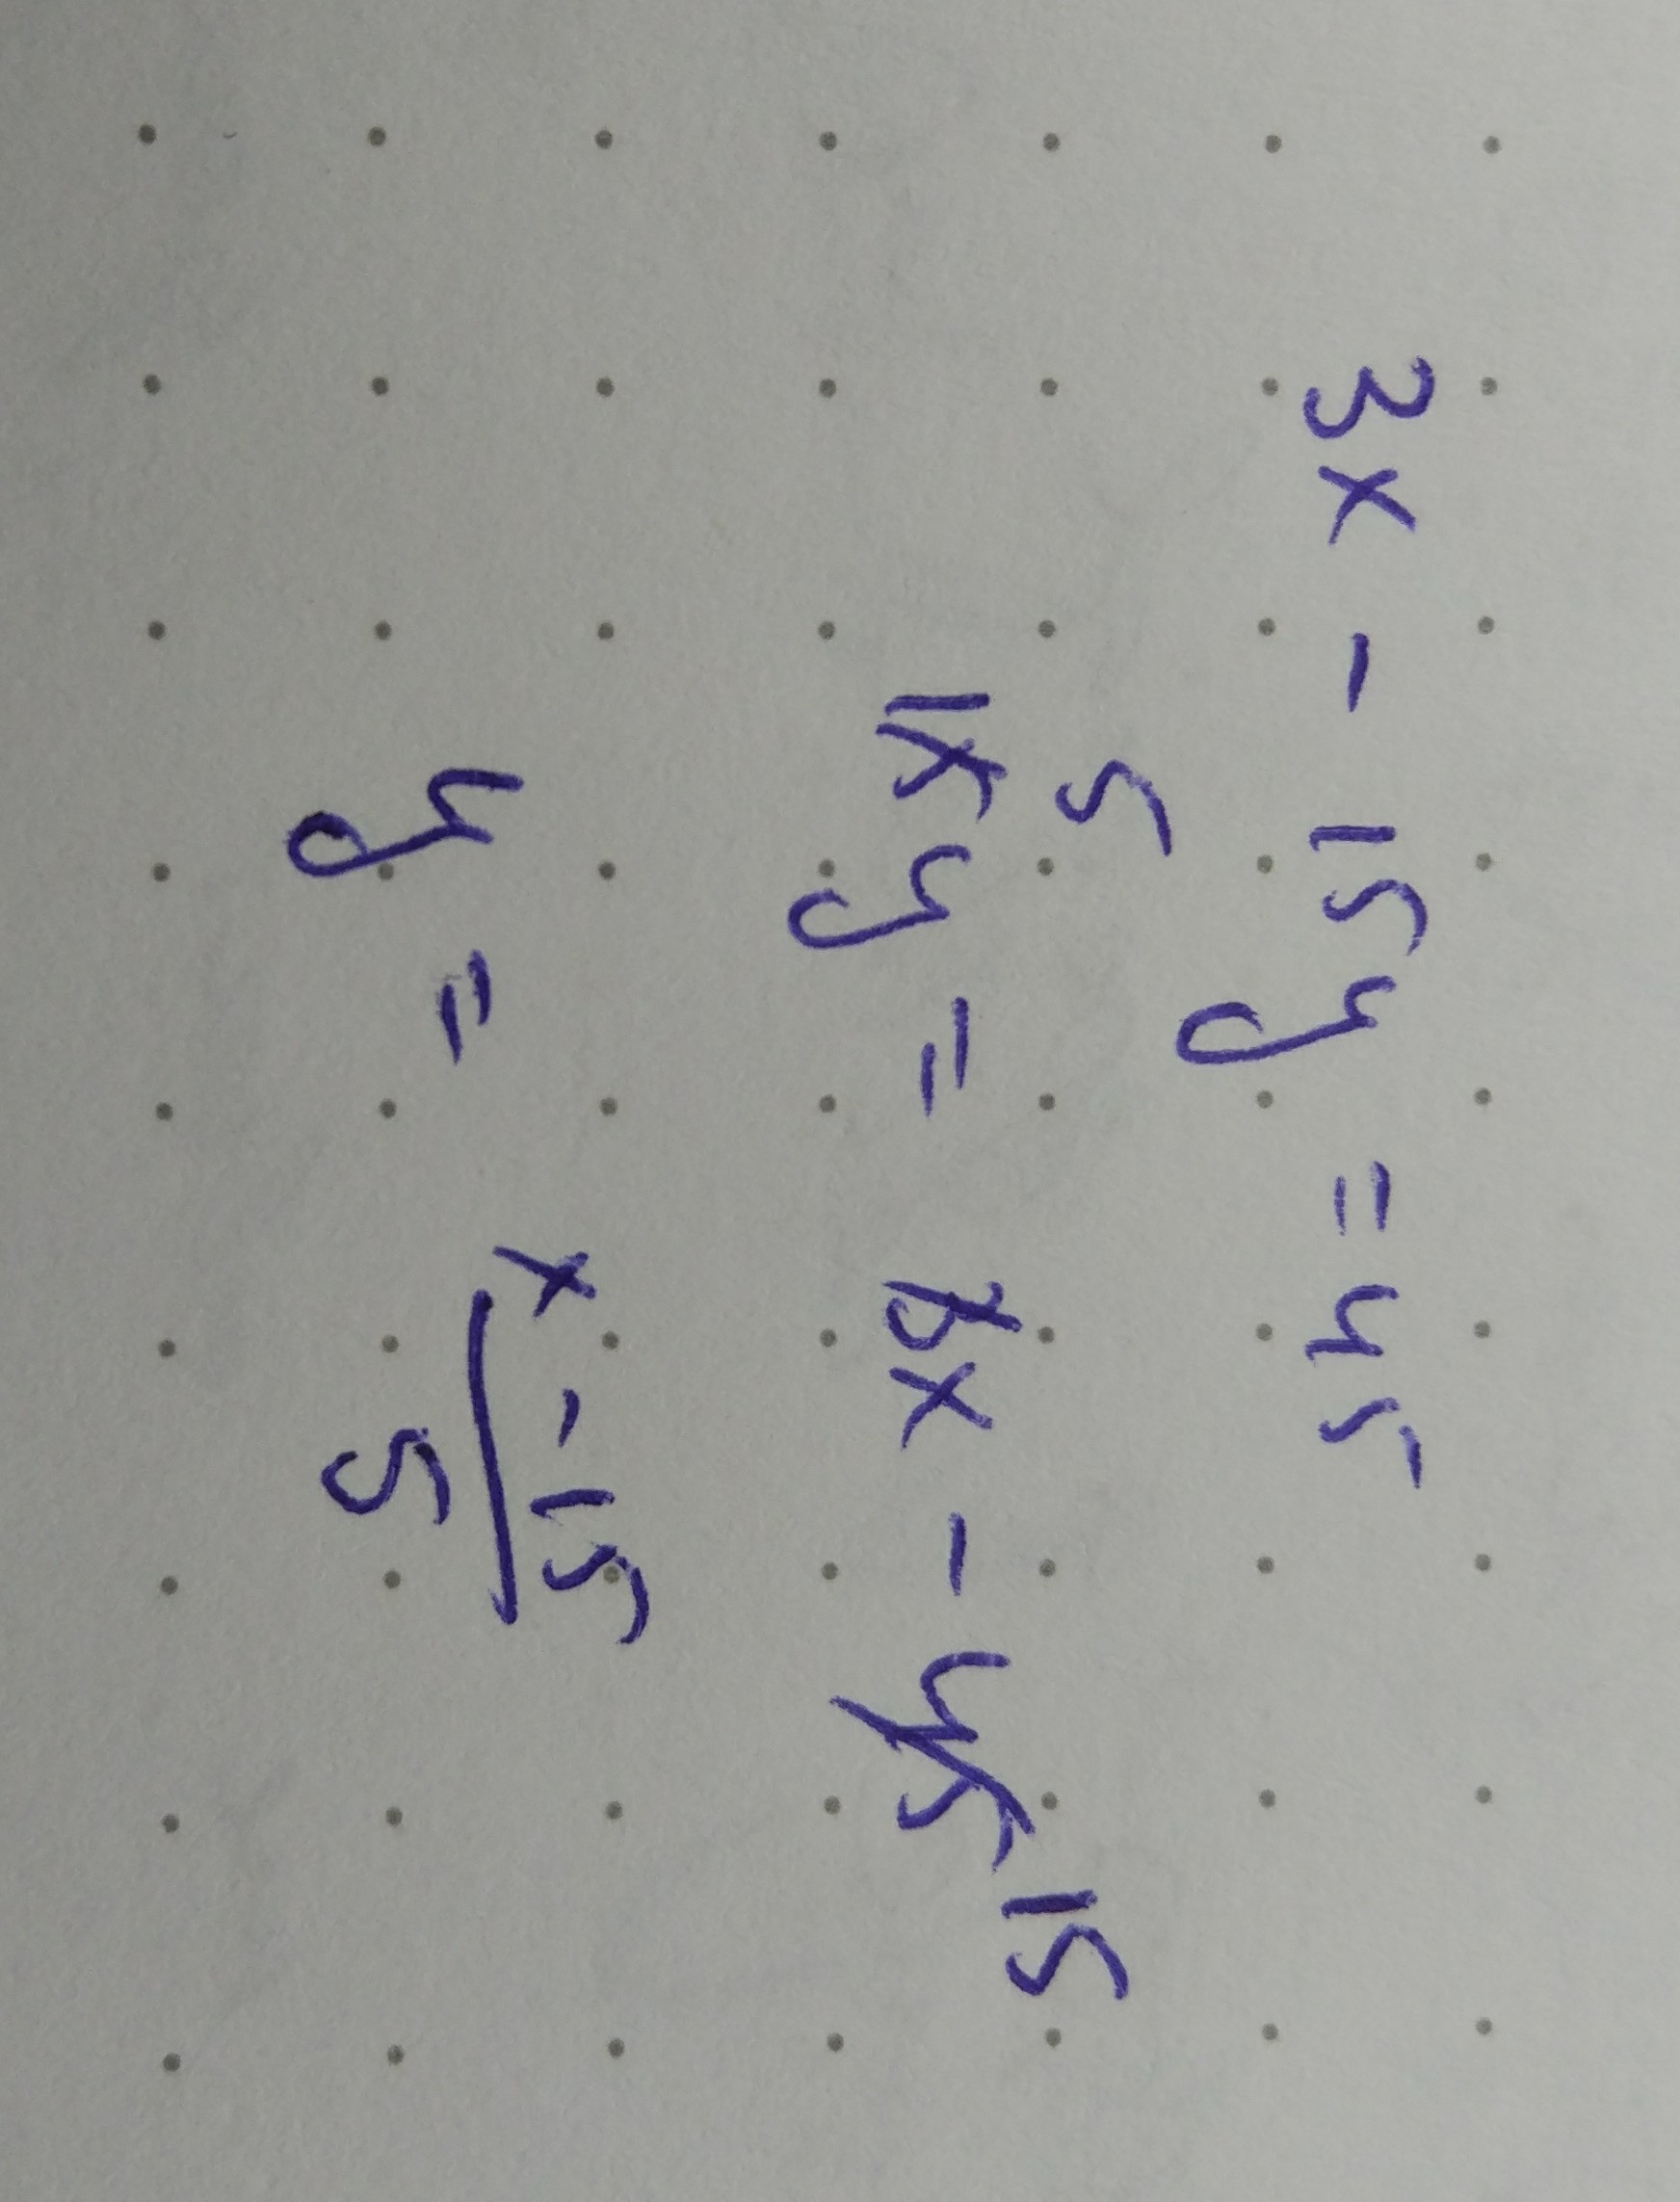 3x - 15y = 45
5
15y = 3x - 45 15
y = x - 15
5